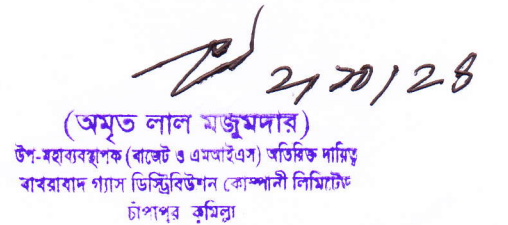 ২/১০/২৪
(অমৃত লাল মজুমদার)
উপ-মহাব্যবস্থাপক (বাজেট ও এমআইএস) অতিরিক্ত দায়িত্ব
বাখরাবাদ গ্যাস ডিস্ট্রিবিউশন কোম্পানী লিমিটেড
চাঁপাপুর কুমিল্লা